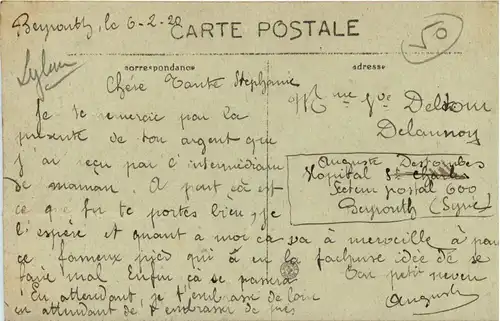 Beyrouth, le 6-2-20
CARTE POSTALE
50
correspondance
adresse
Chére Tante Stephanie
Mme Vve Deltour
Delannoy
Je te remercie par la
présente de ton argent que
j'ai reçu par l'intermédiaire
de maman. A part çà est
ce que tu te portes bien, je
l'espère et quant à moi ca va à merveille à part
ce fameux pied qui à eu la facheuse idée de se
faire mal. Enfin çà se passera
En attendant, je t'embrasse de loin
en attendant de t'embrasser de près
Ton petit neveu
Auguste
Auguste Destombes
Hopital St Charles
Secteur postal 600
Beyrouth (Syrie)